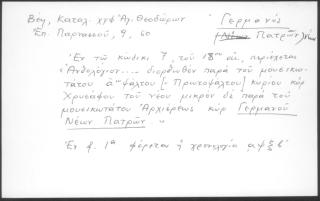 Βέη, Καταλ. χγφ Ἁγ. Θεοδώρων
Γερμανός
Ἐπ. Παρνασσοῦ, 9, 60
Πατρῶν
Ἐν τῷ κώδικι 7, τοῦ 18ου αἰ., περιέχεται
"Ἀνθολόγιον.... διορθωθὲν παρὰ τοῦ μουσικω-
τάτου α'ου ψάλτου [= Πρωτοψάλτου] κυρίου κὺρ
Χρυσάφου τοῦ νέου μικρὸν δὲ παρὰ τοῦ
μουσικωτάτου Ἀρχιερέως κὺρ Γερμανοῦ
Νέων Πατρῶν"
Ἐν φ. 1α φέρεται ἡ χρονολογία αψξβ'